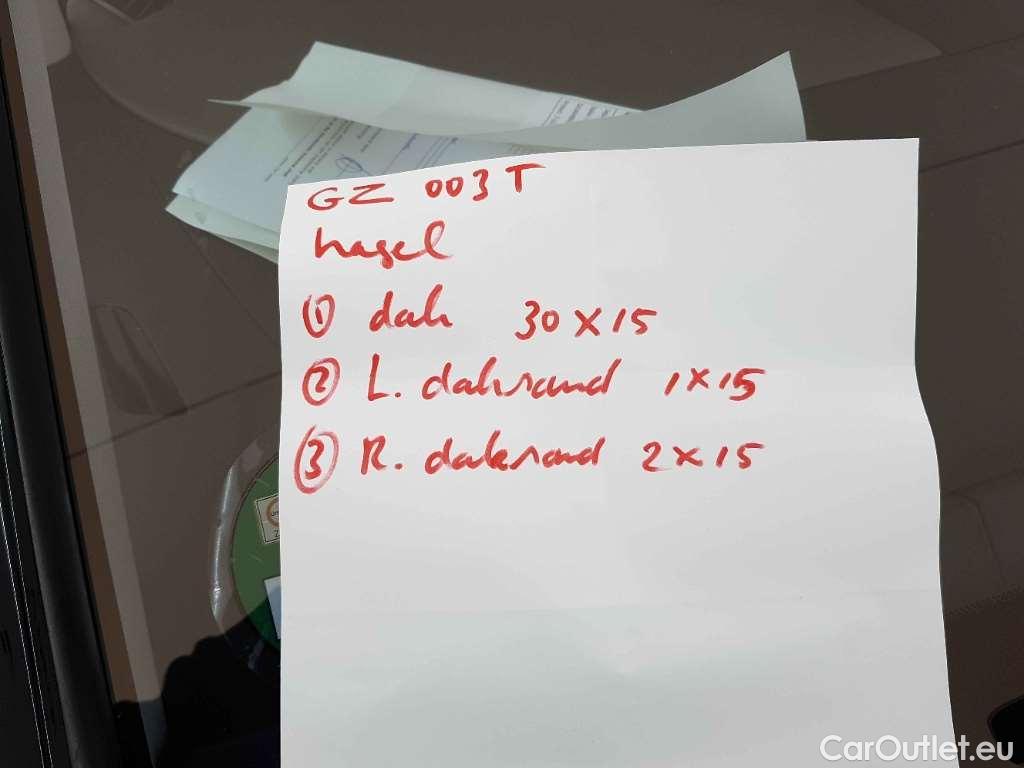 GZ 003 T
hagel
① dak 30 x 15
② L. dakrand 1 x 15
③ R. dakrand 2 x 15
CarOutlet.eu